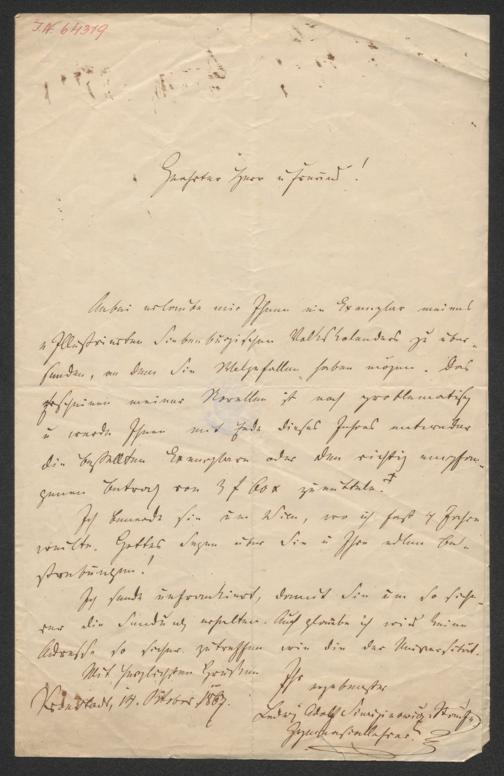 J.N. 64319
Geehrter Herr u Freund!
Anbei erlaube mir Ihnen ein Exemplar meines
"Illustrierten Siebenbürgischen Volkskalenders zu über-
senden, an dem Sie Wolgefallen haben mögen. Das
Erscheinen meiner Novellen ist noch problematisch
u werde Ihnen mit Ende dieses Jahres entweder
die bestellten Exemplare oder den richtig empfan-
genen Betrag von 3 f 60 x
Ich beneide Sie um Wien, wo ich fast 4 Jahre
weilte. Gottes Segen über Sie u Ihre edlen Be-
strebungen!
Ich sende unfrankiert, damit Sie um so siche-
rer die Sendung erhalten. Auch glaube ich wird keine
Adresse so sicher zutreffen wie die der Universität.
Mit herzlichsten Grüßen
Ihr
ergebenster
14. Oktober 1867.
Ludwig Adolf
Gymnasiallehrer.